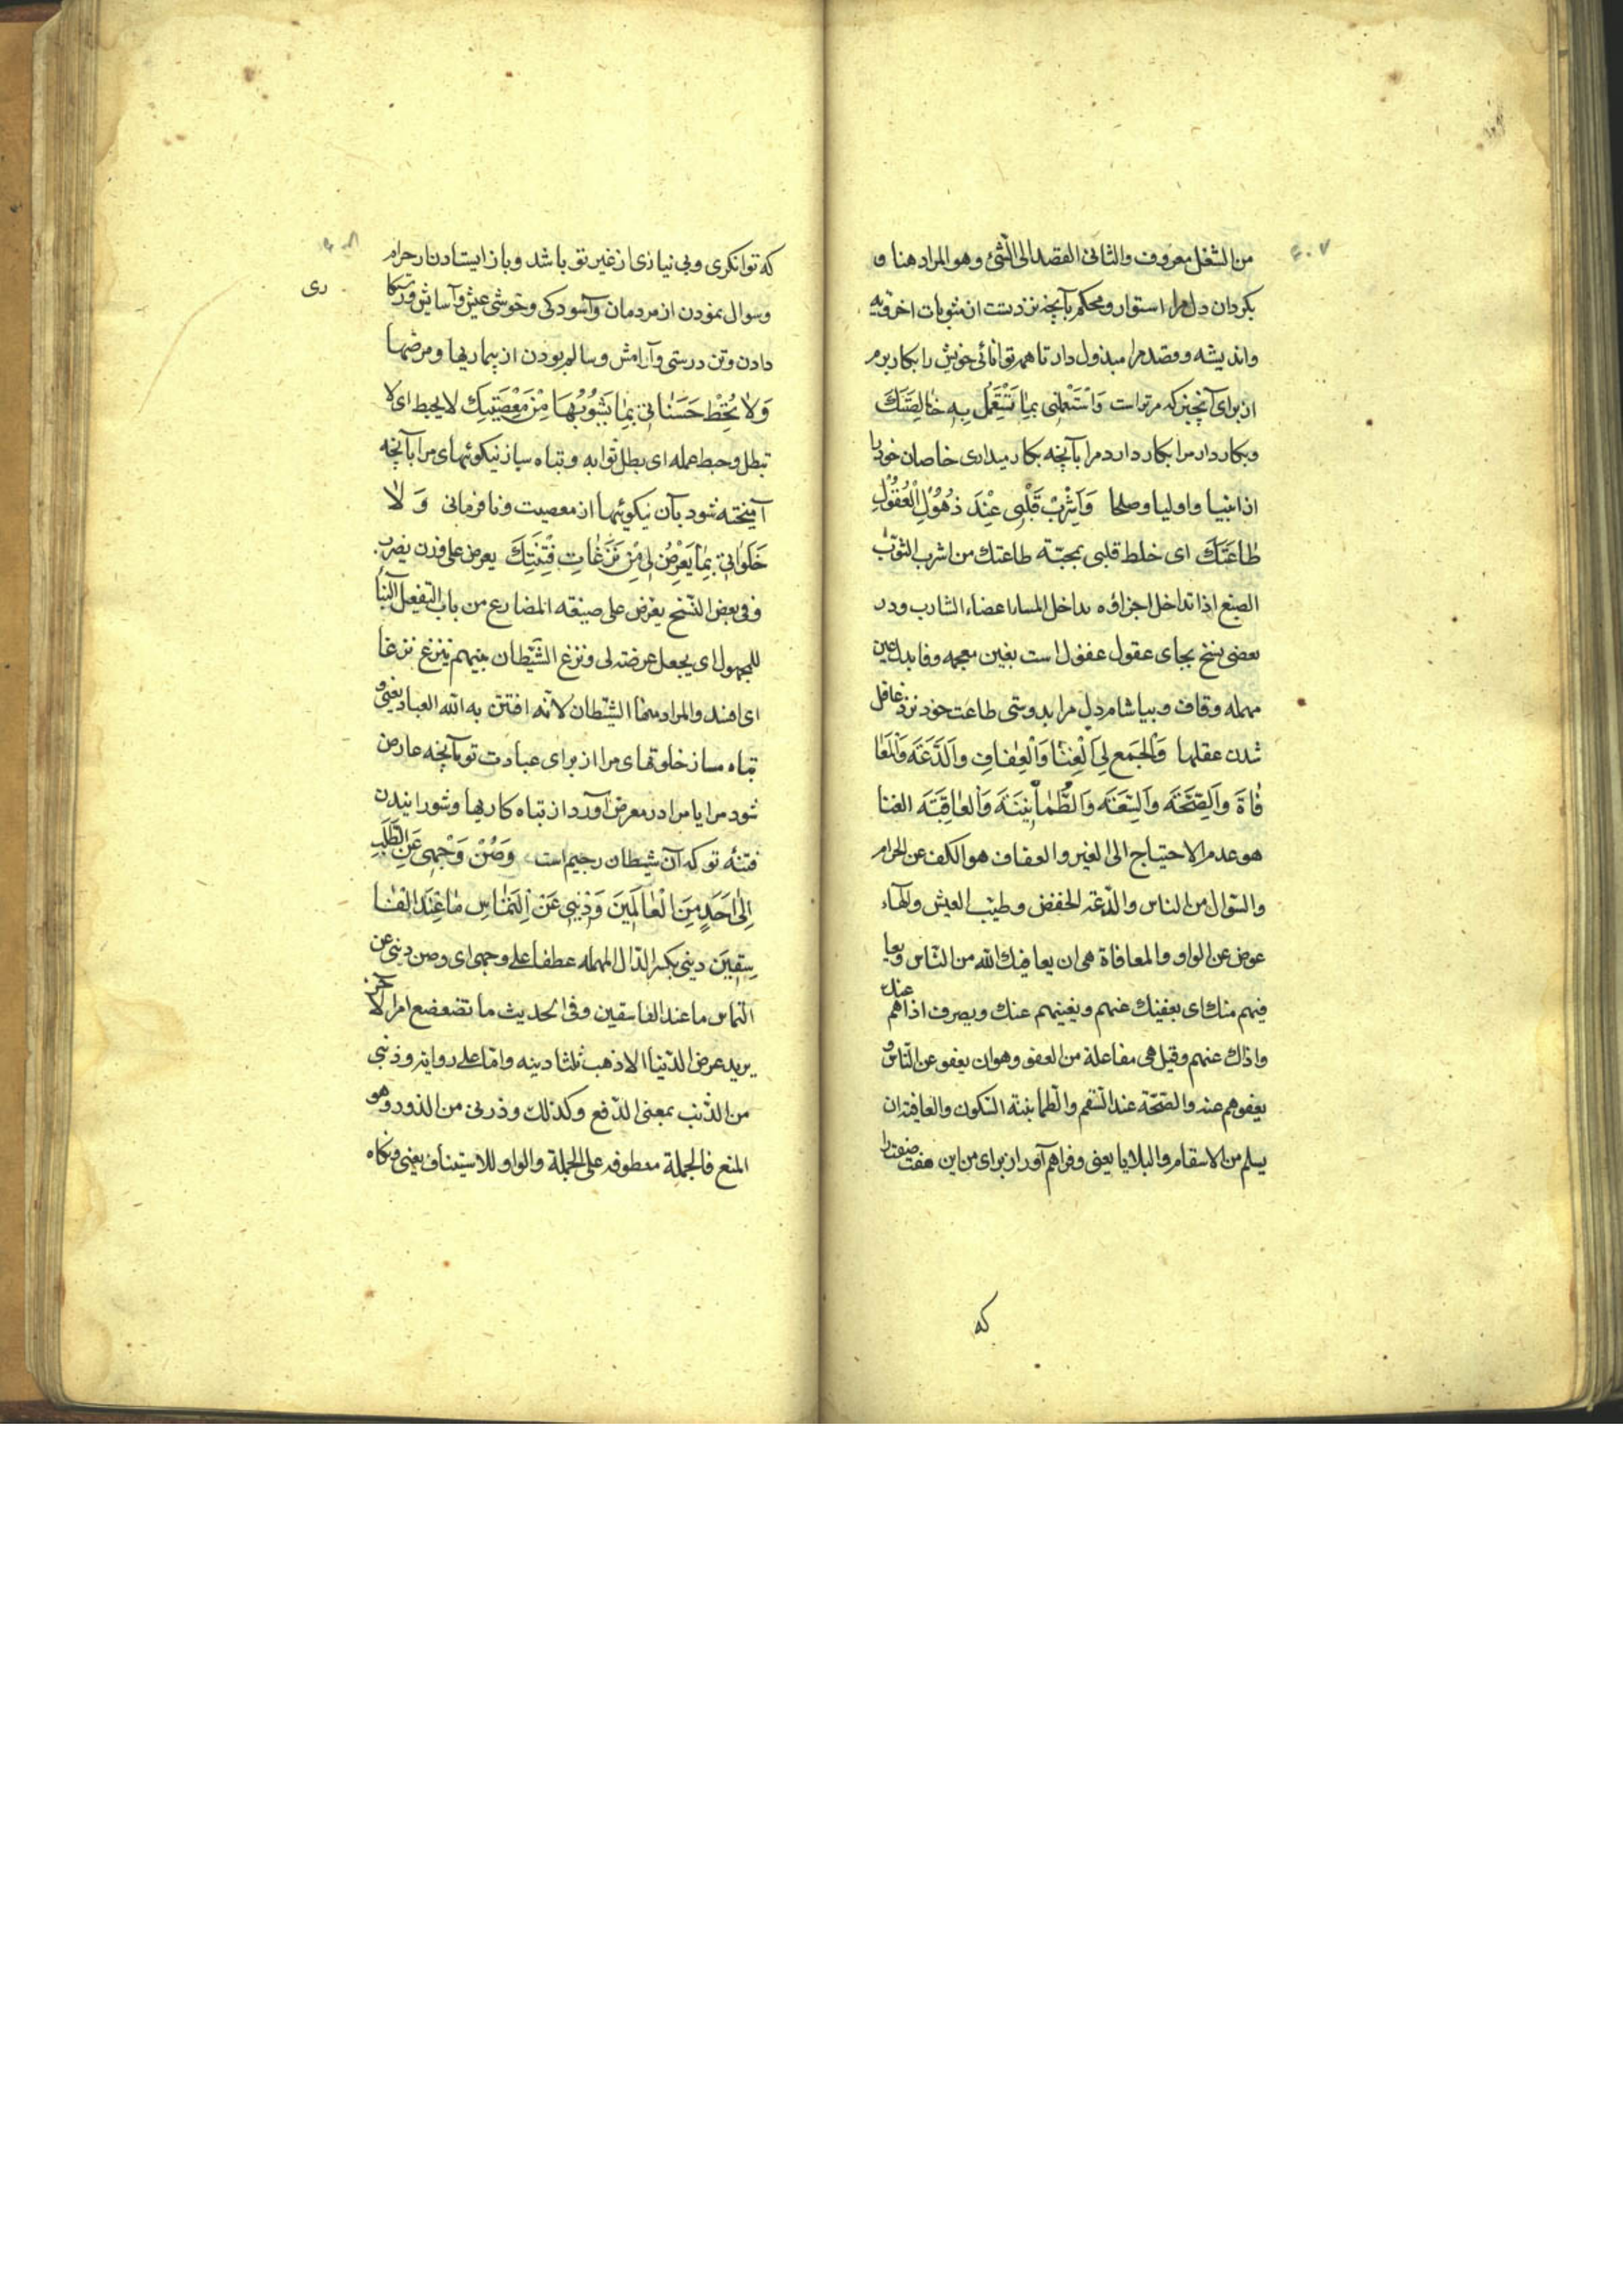 ٤٠٧
من الشغل معروف والثانی القصد الی الشئ وهو المراد هنا و
بکردان دل مرا استوار ومحکم بآنچه نزد تست از مثوبات اخرویه
واندیشه وقصد مرا مبذول دار تا همه توانائی خویش را بکار برم
از برای آنچیز که مر تراست وَاسْتَعْمِلْنِی بِمَا تَسْتَعْمِلُ بِهِ خَالِصَتَكَ
وبکار دار مرا بکار دارد مرا بآنچه بکار میداری خاصان خود را
از انبیا واولیا وصلحا وَاَشْرِبْ قَلْبِی عِنْدَ ذُهُولِ الْعُقُولِ
طَاعَتَكَ ای خلط قلبی بمحبّة طاعتك من اشرب الثوب
الصبغ اذا تداخل اجزاؤه تداخل المساء اعضاء الشارب ودر
بعضی نسخ بجای عقول غفول است بغین معجمه وفا بدل عین
مهمله وقاف وبیاشام دل مرا بدوستی طاعت خود نزد غافل
شدن عقلها وَاجْمَعْ لِی الْغِنَا وَالْعِفَافَ وَالدَّعَةَ وَالْمُعَا
فَاةَ وَالصِّحَّةَ وَالسِّعَةَ وَالطُّمَاْنِینَةَ وَالْعَافِیَةَ الغنا
هو عدم الاحتیاج الی الغیر والعفاف هو الکف عن الحرام
والسّؤال من الناس والدّعة الخفض وطیب العیش والهاء
عوض عن الواو والمعافاة هی ان یعافیك اللّه من النّاس ویعا
فیهم منك ای یغنیك عنهم ویغنیهم عنك ویصرف اذاهم عنك
واذاك عنهم وقیل هی مفاعلة من العفو وهو ان یعفو عن النّاس و
یعفوهم عنه والصّحّة عند السّقم والطمأنینة السّکون والعافیة ان
یسلم من الاسقام والبلایا یعنی وفراهم آور از برای من این هفت صفت را
که
که توانکری وبی نیازی از غیر تو باشد وباز ایستادن از حرام
وسوال نمودن از مردمان وآسودکی وخوشی عیش وآسایش ورستکا
ری
دادن وتن درستی وآرامش وسالم بودن از بیماریها ومرضها
وَلَا تُحْبِطْ حَسَنَاتِی بِمَا یَشُوبُهَا مِنْ مَعْصِیَتِكَ لا یحبط ای لا
تبطل وحبط عمله ای بطل ثوابه وتباه ساز نیکوئیهای مرا بآنچه
آمیخته شود بآن نیکوئیها از معصیت ونافرمانی وَ لَا
خَلَوَاتِی بِمَا یَعْرِضُ لِی مِنْ نَزَغَاتِ فِتْنَتِكَ یعرض علی وزن یضرب
وفی بعض النّسخ یعرّض علی صیغة المضارع من باب التّفعیل البنا
للمجهول ای یجعل عرضة لی ونزغ الشّیطان بینهم ینزغ نزغا
ای افسد والمراد منها الشّیطان لانّه افتتن به اللّه العباد یعنی و
تباه مساز خلوتهای مرا از برای عبادت تو بآنچه عارض
شود مرا یا مرا در معرض آورد از تباه کاریها وشورانیدن
فتنۀ تو که آن شیطان رجیم است وَصُنْ وَجْهِی عَنِ الطَّلَبِ
اِلٰی اَحَدٍ مِنَ الْعَالَمِینَ وَذُبَّنِی عَنْ اِلْتِمَاسِ مَا عِنْدَ الْفَا
سِقِینَ دینی بکسر الدّال المهمله عطفا علی وجهی ای وصن دینی عن
التماس ما عند الفاسقین وفی الحدیث ما تضعضع امرء لآخر
یرید عرض الدّنیا الا ذهب ثلثا دینه وامّا علی روایة وذبنی
من الذّب بمعنی الدّفع وکذلك وذرنی من الذود وهو
المنع فالجملة معطوفه علی الجملة والواو للاستیناف یعنی ونکاه